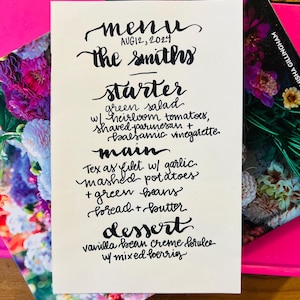 menu
AUG 12, 2024
the smiths
starter
green salad
w/ heirloom tomatoes,
shaved parmesan +
balsamic vinegarette
main
Texas filet w/ garlic
mashed potatoes
+ green beans
bread + butter
dessert
vanilla bean creme brulee
w/ mixed berries
GILLINGHAM